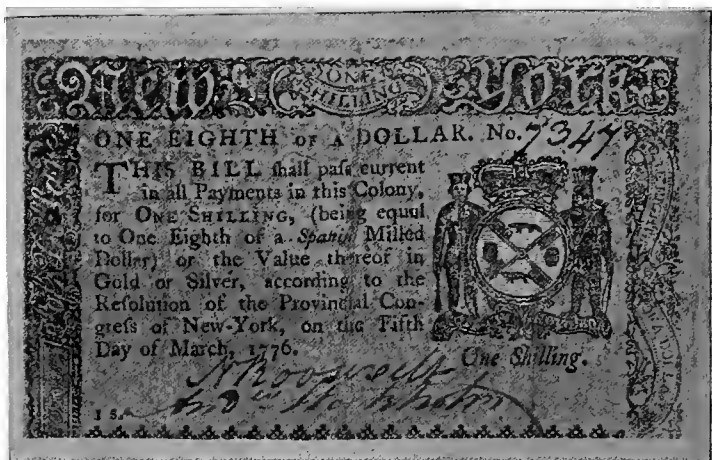 New ONE SHILLING York
ONE EIGHTH OF A DOLLAR. No. 7347
THIS BILL ſhall paſs current
in all Payments in this Colony,
for ONE SHILLING, (being equal
to One Eighth of a Spaniſh Milled
Dollar) or the Value thereof in
Gold or Silver, according to the
Reſolution of the Provincial Con-
greſs of New-York, on the Fifth
Day of March, 1776.
One Shilling.
N Rooſevelt
And Stockholm
1 S.